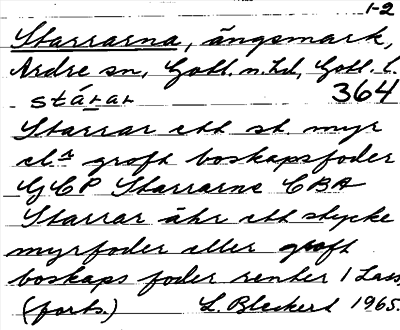 1-2
Starrarna, ängsmark,
Ardre sn, Gotl. n. hd, Gotl. l.
stárar 364
Starrar ett st. myr
el. groft boskapsfoder
GCP Starrarne CBA
Starrar ähr ett stycke
myrfoder eller groft
boskaps foder renter 1 Lass,
(forts.) L. Bleckert 1965.